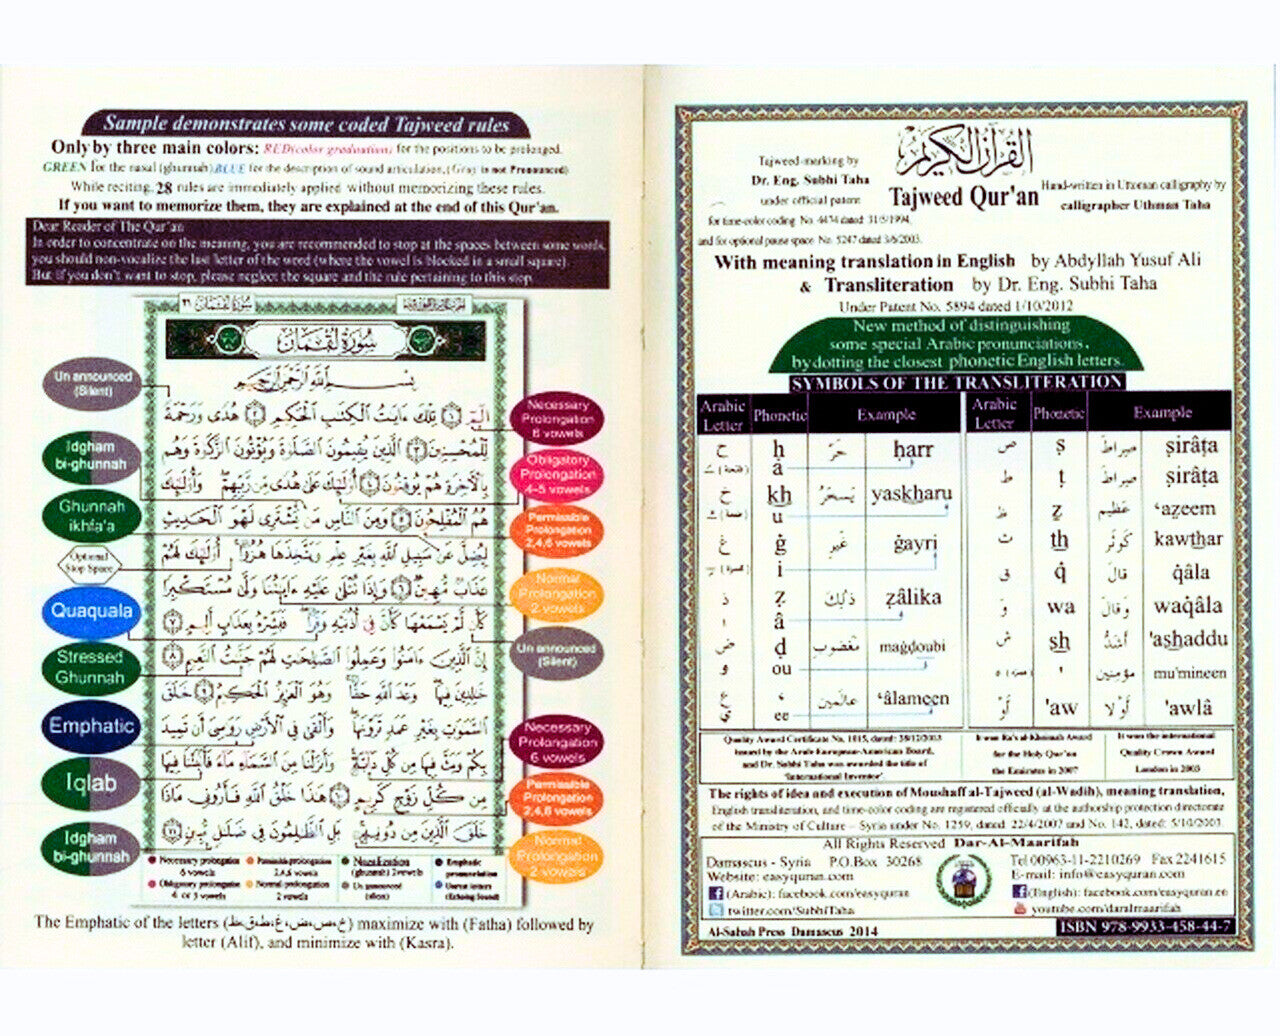 Sample demonstrates some coded Tajweed rules
Only by three main colors: RED(color graduations for the positions to be prolonged.
GREEN for the nasal (ghunnah).BLUE for the description of sound articulation,(Gray is not Pronounced)
While reciting, 28 rules are immediately applied without memorizing these rules.
If you want to memorize them, they are explained at the end of this Qur'an.
Dear Reader of The Qur'an
In order to concentrate on the meaning, you are recommended to stop at the spaces between some words,
you should non-vocalize the last letter of the word (where the vowel is blocked in a small square).
But if you don't want to stop, please neglect the square and the rule pertaining to this stop.
سُورَةُ لُقْمَان ٣١
سُورَةُ لُقْمَان
بِسْمِ اللَّهِ الرَّحْمَٰنِ الرَّحِيمِ
الٓمٓ ١ تِلْكَ ءَايَٰتُ الْكِتَٰبِ الْحَكِيمِ ٢ هُدًى وَرَحْمَةً
لِّلْمُحْسِنِينَ ٣ الَّذِينَ يُقِيمُونَ الصَّلَوٰةَ وَيُؤْتُونَ الزَّكَوٰةَ وَهُم
بِالْءَاخِرَةِ هُمْ يُوقِنُونَ ٤ أُو۟لَٰٓئِكَ عَلَىٰ هُدًى مِّن رَّبِّهِمْ وَأُو۟لَٰٓئِكَ
هُمُ الْمُفْلِحُونَ ٥ وَمِنَ النَّاسِ مَن يَشْتَرِى لَهْوَ الْحَدِيثِ
لِيُضِلَّ عَن سَبِيلِ اللَّهِ بِغَيْرِ عِلْمٍ وَيَتَّخِذَهَا هُزُوًا أُو۟لَٰٓئِكَ لَهُمْ
عَذَابٌ مُّهِينٌ ٦ وَإِذَا تُتْلَىٰ عَلَيْهِ ءَايَٰتُنَا وَلَّىٰ مُسْتَكْبِرًا
كَأَن لَّمْ يَسْمَعْهَا كَأَنَّ فِىٓ أُذُنَيْهِ وَقْرًا فَبَشِّرْهُ بِعَذَابٍ أَلِيمٍ ٧
إِنَّ الَّذِينَ ءَامَنُوا۟ وَعَمِلُوا۟ الصَّٰلِحَٰتِ لَهُمْ جَنَّٰتُ النَّعِيمِ ٨
خَٰلِدِينَ فِيهَا وَعْدَ اللَّهِ حَقًّا وَهُوَ الْعَزِيزُ الْحَكِيمُ ٩ خَلَقَ
السَّمَٰوَٰتِ بِغَيْرِ عَمَدٍ تَرَوْنَهَا وَأَلْقَىٰ فِى الْأَرْضِ رَوَٰسِىَ أَن تَمِيدَ
بِكُمْ وَبَثَّ فِيهَا مِن كُلِّ دَآبَّةٍ وَأَنزَلْنَا مِنَ السَّمَآءِ مَآءً فَأَنۢبَتْنَا فِيهَا
مِن كُلِّ زَوْجٍ كَرِيمٍ ١٠ هَٰذَا خَلْقُ اللَّهِ فَأَرُونِى مَاذَا
خَلَقَ الَّذِينَ مِن دُونِهِ بَلِ الظَّٰلِمُونَ فِى ضَلَٰلٍ مُّبِينٍ ١١
Un announced
(Silent)
Idgham
bi-ghunnah
Ghunnah
ikhfa'a
Optional
Stop Space
Quaquala
Stressed
Ghunnah
Emphatic
Iqlab
Idgham
bi-ghunnah
Necessary
Prolongation
6 vowels
Obligatory
Prolongation
4-5 vowels
Permissable
Prolongation
2,4,6 vowels
Normal
Prolongation
2 vowels
Un announced
(Silent)
Necessary
Prolongation
6 vowels
Permissable
Prolongation
2,4,6 vowels
Normal
Prolongation
2 vowels
Necessary prolongation
6 vowels
Permissible prolongation
2,4,6 vowels
Nazalization
(ghunnah) 2vowels
Emphatic
pronounciation
Obligatory prolongation
4 or 5 vowels
Normal prolongation
2 vowels
Un announced
(silent)
Unrest letters
(Echoing Sound)
The Emphatic of the letters (خ،ص،ض،غ،ط،ق،ظ) maximize with (Fatha) followed by
letter (Alif), and minimize with (Kasra).
القرآن الكريم
Tajweed Qur'an
Tajweed-marking by
Dr. Eng. Subhi Taha
under official patent
for time-color coding No. 4474 dated 31/5/1994,
and for optional pause space No. 5247 dated 3/6/2003.
Hand-written in Uttoman calligraphy by
calligrapher Uthman Taha
With meaning translation in English by Abdyllah Yusuf Ali
& Transliteration by Dr. Eng. Subhi Taha
Under Patent No. 5894 dated 1/10/2012
New method of distinguishing
some special Arabic pronunciations,
by dotting the closest phonetic English letters.
SYMBOLS OF THE TRANSLITERATION
Arabic Letter Phonetic Example Arabic Letter Phonetic Example
ح ḥ حَرّ ḥarr ص ṣ صِراطَ ṣirâṭa
(فتحة) َ a
ط ṭ صِراطَ ṣirâṭa
خ kh يَسخَرُ yaskharu ظ ẓ عَظِيم ‘aẓeem
(ضمة) ُ u
ث th كَوثَر kawthar
غ ġ غَيرِ ġayri ق q̇ قالَ q̇âla
(كسرة) ِ i
ذ ẓ ذَلِكَ ẓâlika وَ wa وَقالَ waq̇âla
ا â
ض ḍ مَغضُوبِ maġḍoubi ش sh أشَدُّ 'ashaddu
و ou
ء ' مؤمِنين mu'mineen
ع ‘ عالَمين ‘âlameen أَوْ 'aw أَوْلا 'awlâ
ي ee
Quality Award Certificate No. 1015, dated: 28/12/2003
issued by the Arab-European-American Board,
and Dr. Subhi Taha was awarded the title of
'International Inventor'
It won Ra's al-Khaimah Award
for the Holy Qur'an
the Emirates in 2007
It won the international
Quality Crown Award
London in 2003
The rights of idea and execution of Moushaff al-Tajweed (al-Wadih), meaning translation,
English transliteration, and time-color coding are registered officially at the authorship protection directorate
of the Ministry of Culture – Syria under No. 1259, dated: 22/4/2007 and No. 142, dated: 5/10/2003.
All Rights Reserved Dar-Al-Maarifah
Damascus - Syria P.O.Box 30268
Website: easyquran.com
(Arabic): facebook.com/easyquran
twitter.com/SubhiTaha
Tel 00963-11-2210269 Fax 2241615
E-mail: info@easyquran.com
(English): facebook.com/easyquran.en
youtube.com/daralmaarifah
Al-Sabah Press Damascus 2014
ISBN 978-9933-458-44-7